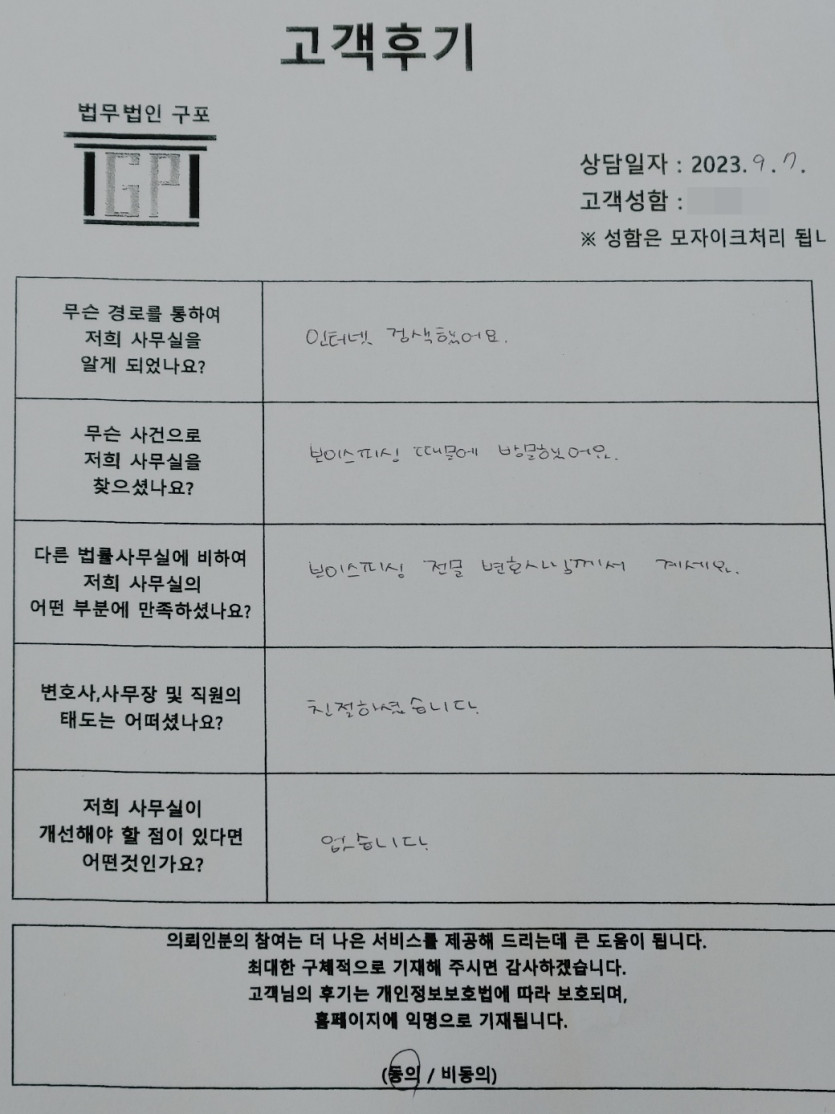 고객후기
법무법인 구포
GP
상담일자 : 2023. 9. 7.
고객성함 :
※ 성함은 모자이크처리 됩ㄴ
무슨 경로를 통하여
저희 사무실을
알게 되었나요?
인터넷 검색했어요.
무슨 사건으로
저희 사무실을
찾으셨나요?
보이스피싱 때문에 방문했어요.
다른 법률사무실에 비하여
저희 사무실의
어떤 부분에 만족하셨나요?
보이스피싱 전문 변호사님께서 계세요.
변호사,사무장 및 직원의
태도는 어떠셨나요?
친절하셨습니다.
저희 사무실이
개선해야 할 점이 있다면
어떤것인가요?
없습니다.
의뢰인분의 참여는 더 나은 서비스를 제공해 드리는데 큰 도움이 됩니다.
최대한 구체적으로 기재해 주시면 감사하겠습니다.
고객님의 후기는 개인정보보호법에 따라 보호되며,
홈페이지에 익명으로 기재됩니다.
(동의 / 비동의)